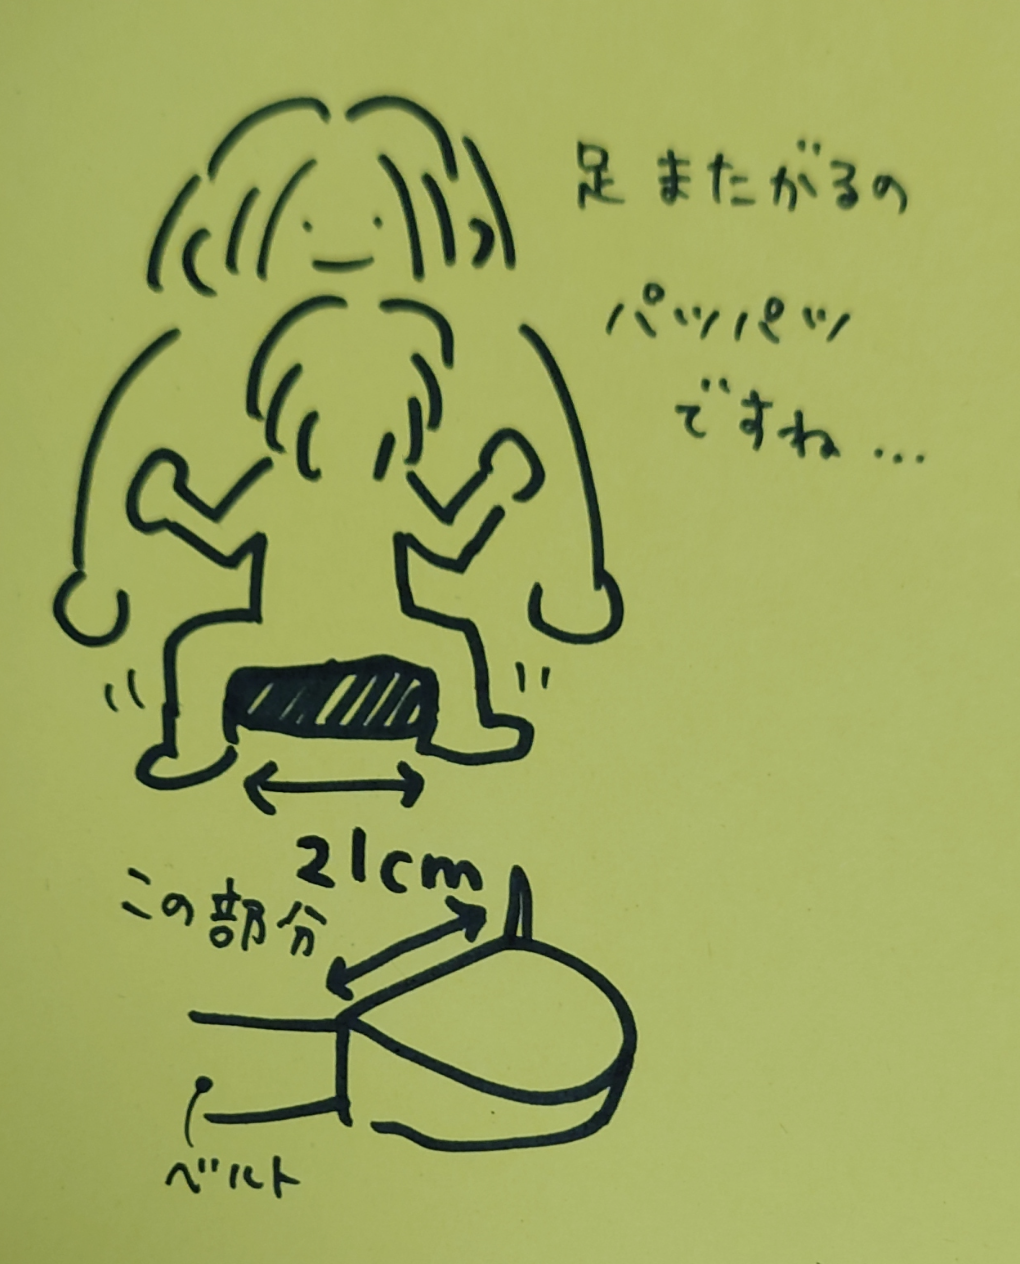 足またがるの
パッパツ
ですね…
21cm
この部分
ベルト